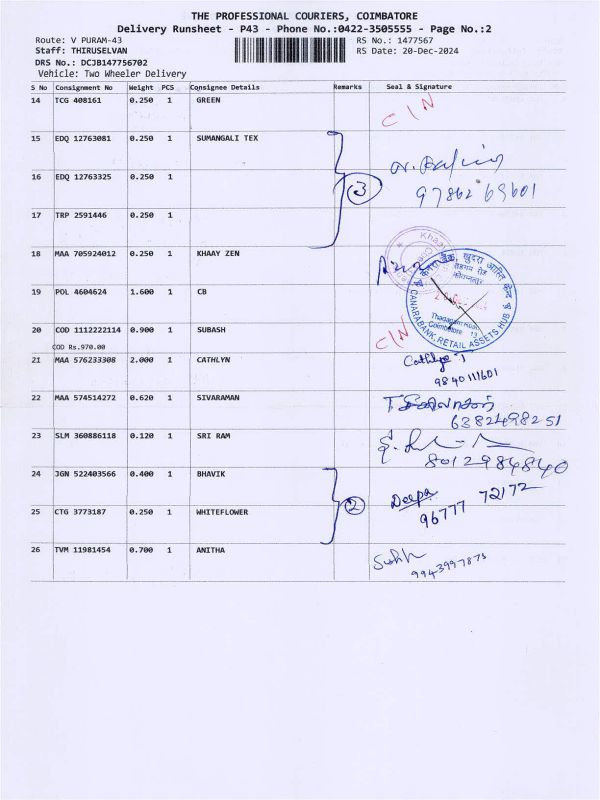 THE PROFESSIONAL COURIERS, COIMBATORE
Delivery Runsheet - P43 - Phone No.:0422-3505555 - Page No.:2
Route: V PURAM-43 RS No.: 1477567
Staff: THIRUSELVAN RS Date: 20-Dec-2024
DRS No.: DCJB147756702
Vehicle: Two Wheeler Delivery
S No Consignment No Weight PCS Consignee Details Remarks Seal & Signature
14 TCG 408161 0.250 1 GREEN C/N
15 EDQ 12763081 0.250 1 SUMANGALI TEX
16 EDQ 12763325 0.250 1 3 97862 69601
17 TRP 2591446 0.250 1
18 MAA 705924012 0.250 1 KHAAY ZEN
19 POL 4604624 1.600 1 CB
CANARA BANK, RETAIL ASSETS HUB
Coimbatore
20 COD 1112222114 0.900 1 SUBASH C/N
COD Rs.970.00
21 MAA 576233308 2.000 1 CATHLYN
9840111601
22 MAA 574514272 0.620 1 SIVARAMAN
6382498251
23 SLM 360886118 0.120 1 SRI RAM
8012984840
24 JGN 522403566 0.400 1 BHAVIK Deepa
25 CTG 3773187 0.250 1 WHITEFLOWER 2 96777 72172
26 TVM 11981454 0.700 1 ANITHA
9943997875